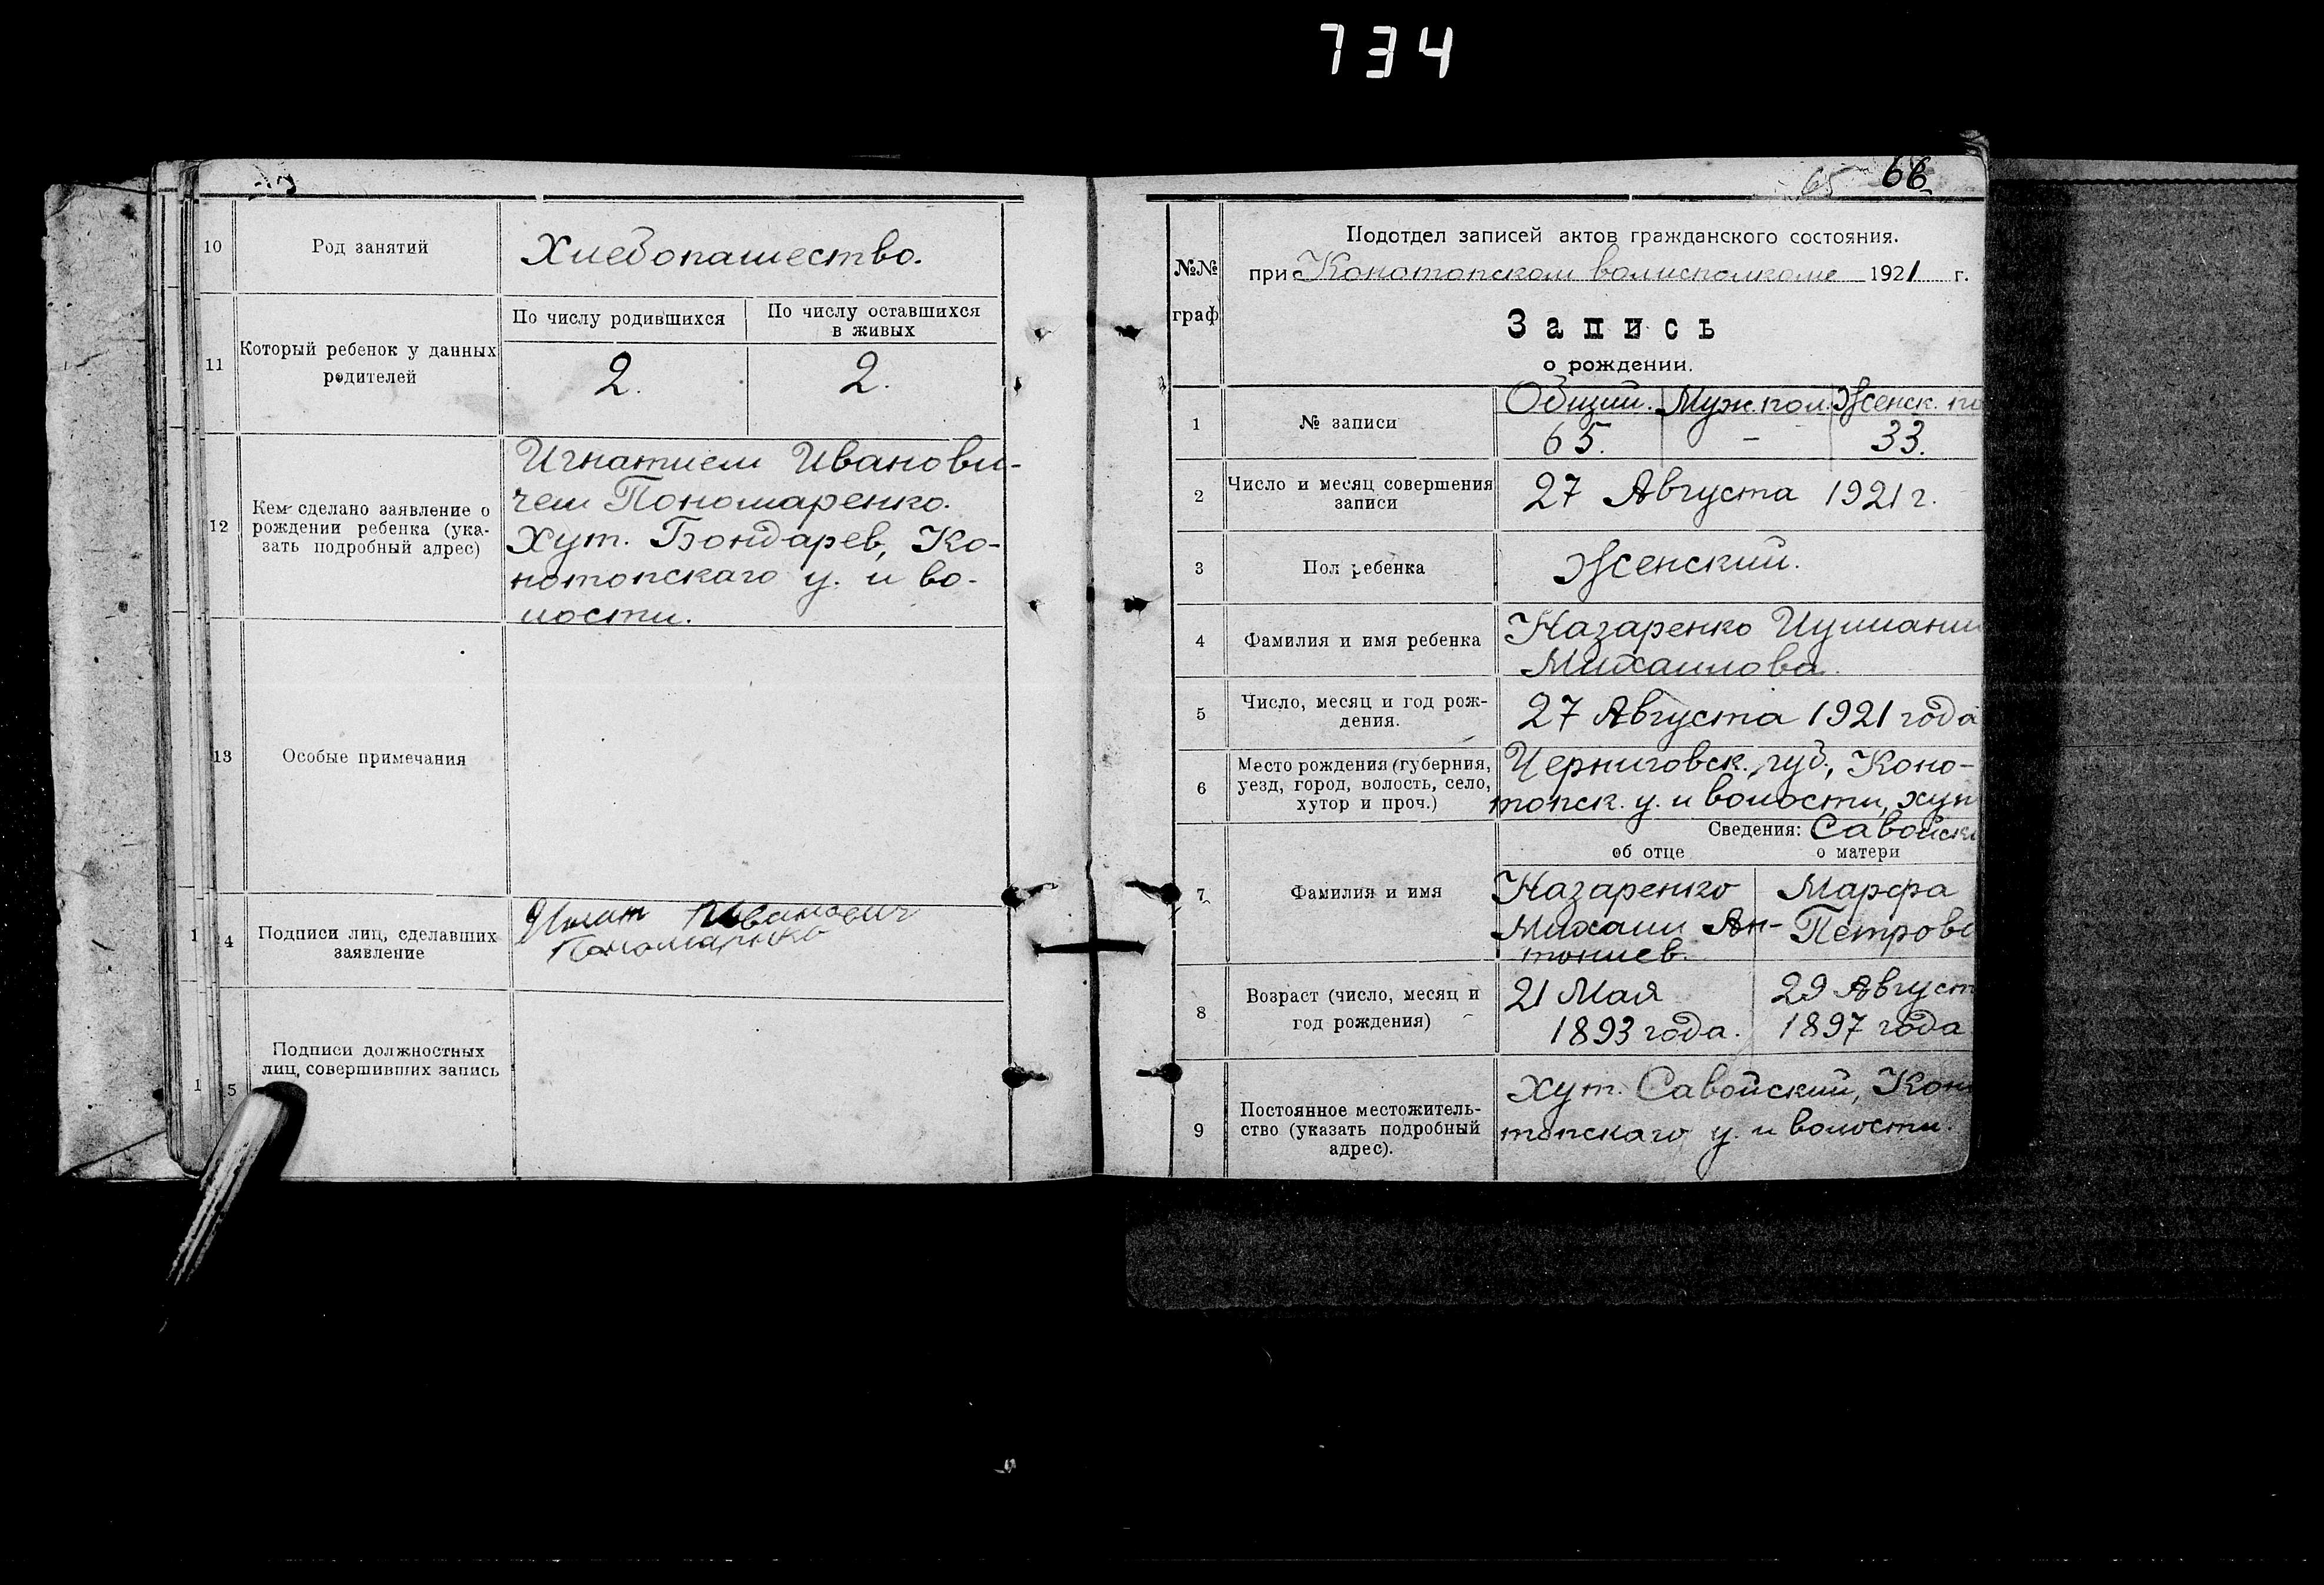 734
10
Род занятий
Хлебопашество.
11
Который ребенок у данных
родителей
По числу родившихся
По числу оставшихся
в живых
2.
2.
12
Кем сделано заявление о
рождении ребенка (ука-
зать подробный адрес)
Игнатием Иванови-
чем Пономаренко.
Хут. Бондарев, Ко-
нотопскаго у. и во-
лости.
13
Особые примечания
14
Подписи лиц, сделавших
заявление
Игнат Иванович
Пономаренко
15
Подписи должностных
лиц, совершивших запись
65 66
№№
граф
Подотдел записей актов гражданского состояния.
при Конотопском волисполкоме 1921 г.
Запись
о рождении.
1
№ записи
Общий. Муж. пол. Женск. по
65. - 33.
2
Число и месяц совершения
записи
27 Августа 1921 г.
3
Пол ребенка
Женский.
4
Фамилия и имя ребенка
Назаренко Иулиани
Михаилова.
5
Число, месяц и год рож-
дения.
27 Августа 1921 года
6
Место рождения (губерния,
уезд, город, волость, село,
хутор и проч.)
Черниговск. губ., Коно-
топск. у. и волости, хут
Сведения: Савойски
об отце
о матери
7
Фамилия и имя
Назаренко
Михаил Ан-
тониев.
Марфа
Петрова
8
Возраст (число, месяц и
год рождения)
21 Мая
1893 года.
29 Август
1897 года
9
Постоянное местожитель-
ство (указать подробный
адрес).
хут. Савойский, Коно
топскаго у. и волости.